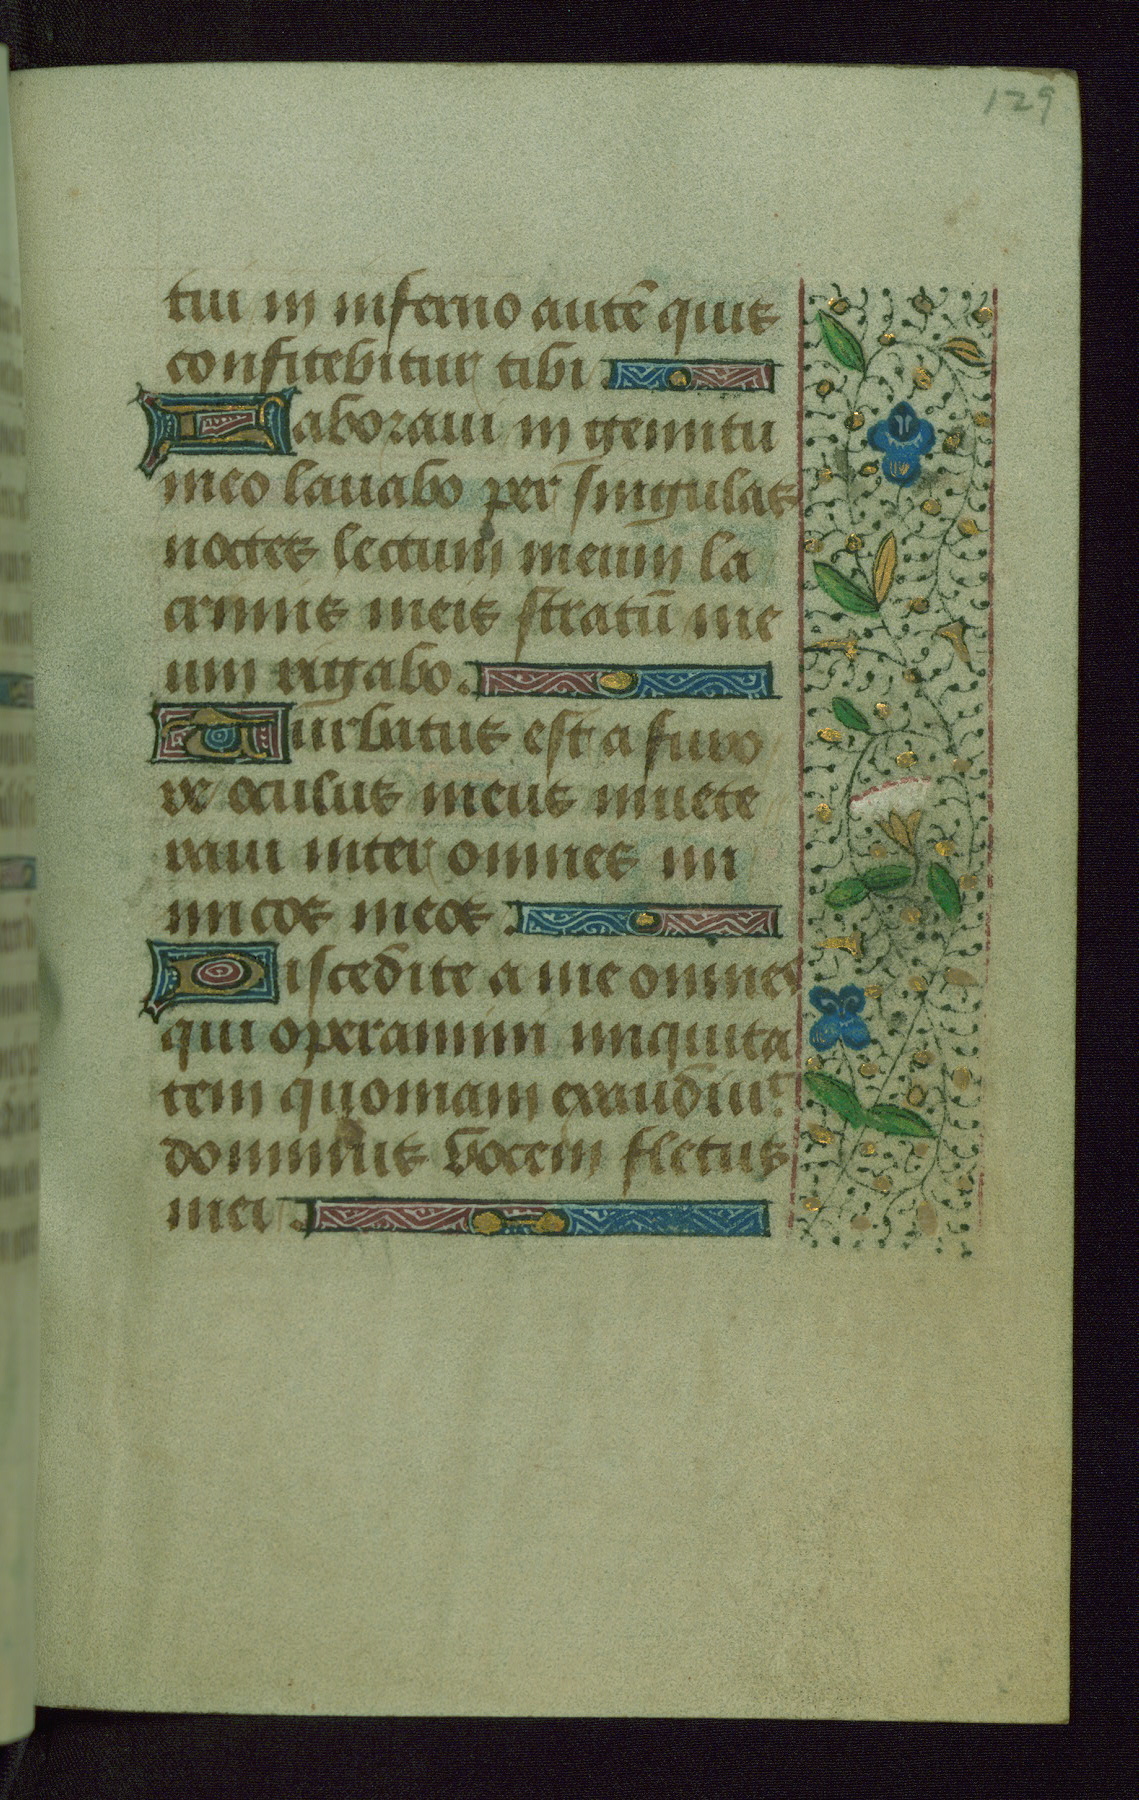 129
tui in inferno autē quis
confitebitur tibi
Laboraui in gemitu
meo lauabo per singulas
noctes lectum meum la
crimis meis stratū me
um rigabo.
Turbatus est a furo
re oculus meus inuete
raui inter omnes ini
micos meos
Discedite a me omnes
qui operamini iniquita
tem quoniam exaudiuit
dominus vocem fletus
mei